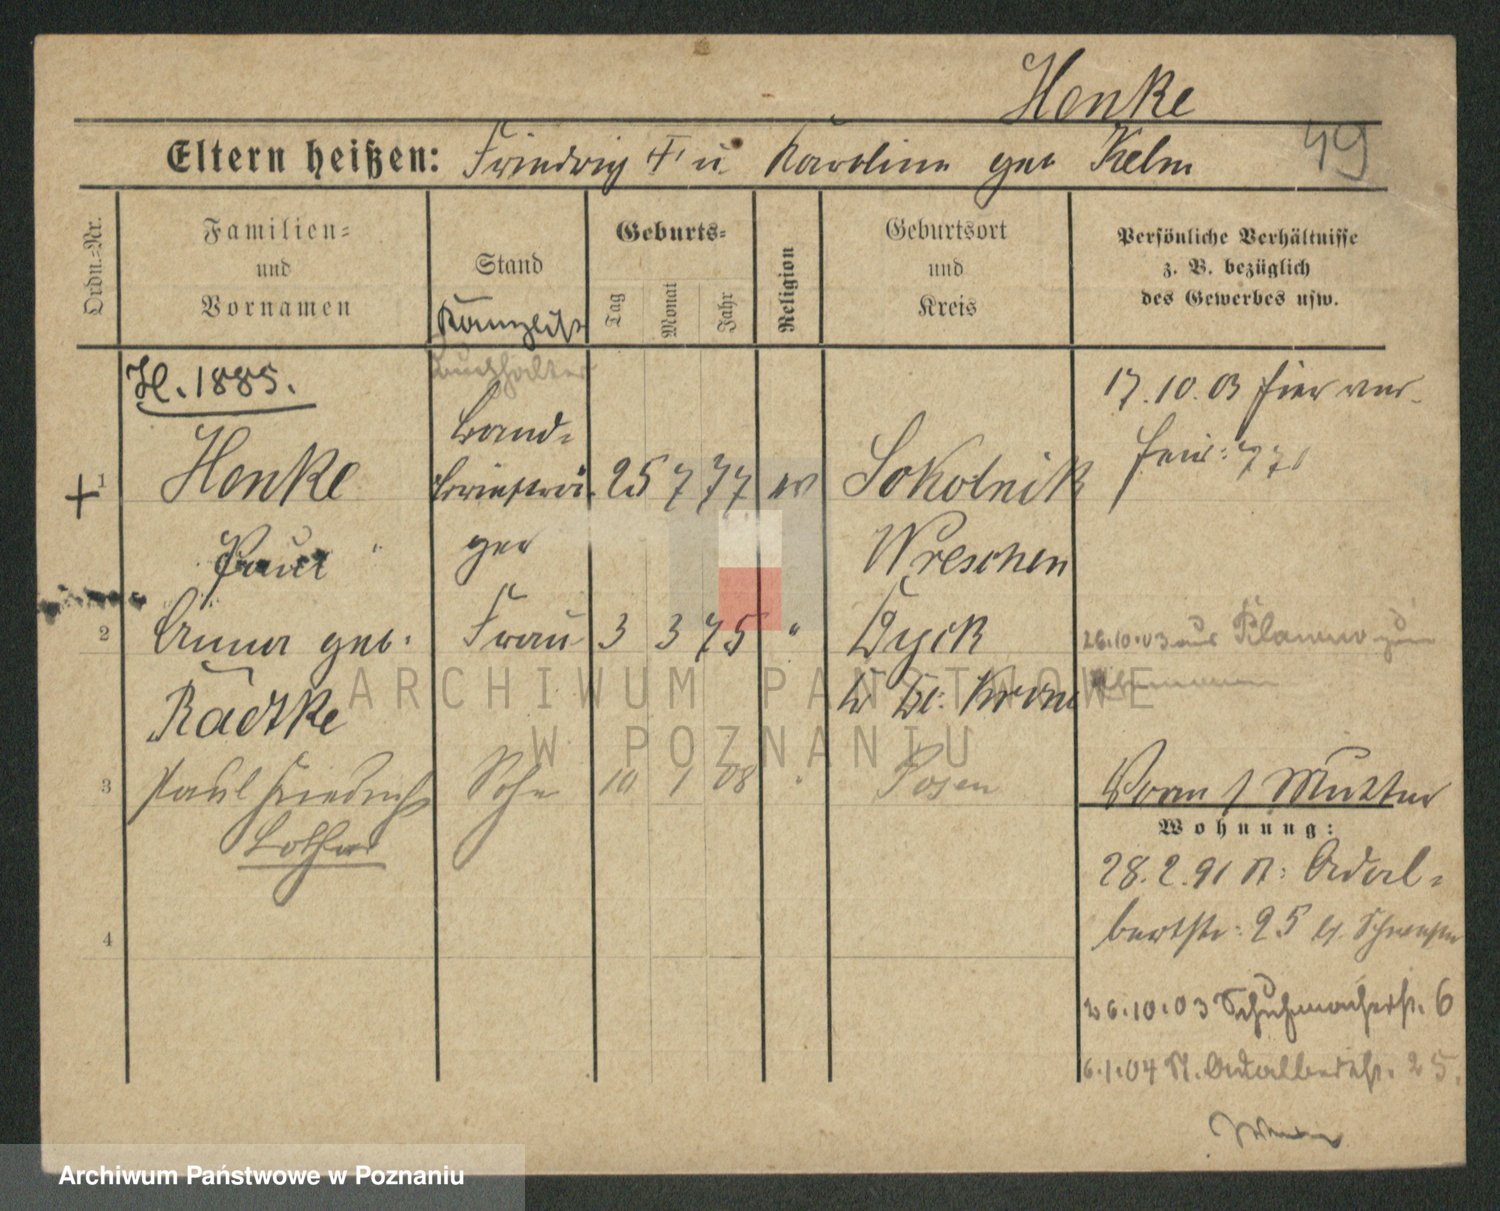 Henke
49
Eltern heißen: Friedrich † u. Karoline geb Kelm
Ordn.-Nr.
Familien-
und
Vornamen
Stand
Kanzlist
Geburts-
Tag
Monat
Jahr
Religion
Geburtsort
und
Kreis
Persönliche Verhältnisse
z. B. bezüglich
des Gewerbes usw.
H. 1885.
Buchhalter
17.10.03 hier ver-
1
Henke
Land-
briefträ-
25 7 77 ev
Sokolnik
Paul
ger
Wreschen
2
Anna geb.
Frau
3 3 75 "
Dyck
26.10.03 aus
Radtke
Dt: Krone
3
Paul Friedrich
Sohn
10 1 08 "
Posen
Mutter
Lothar
Wohnung:
28.2.91 N: Adal-
4
bertstr: 25
26.10.03 Schuhmacherstr. 6
6.1.04 N. Adalbertstr. 25.
ARCHIWUM PAŃSTWOWE
W POZNANIU
Archiwum Państwowe w Poznaniu